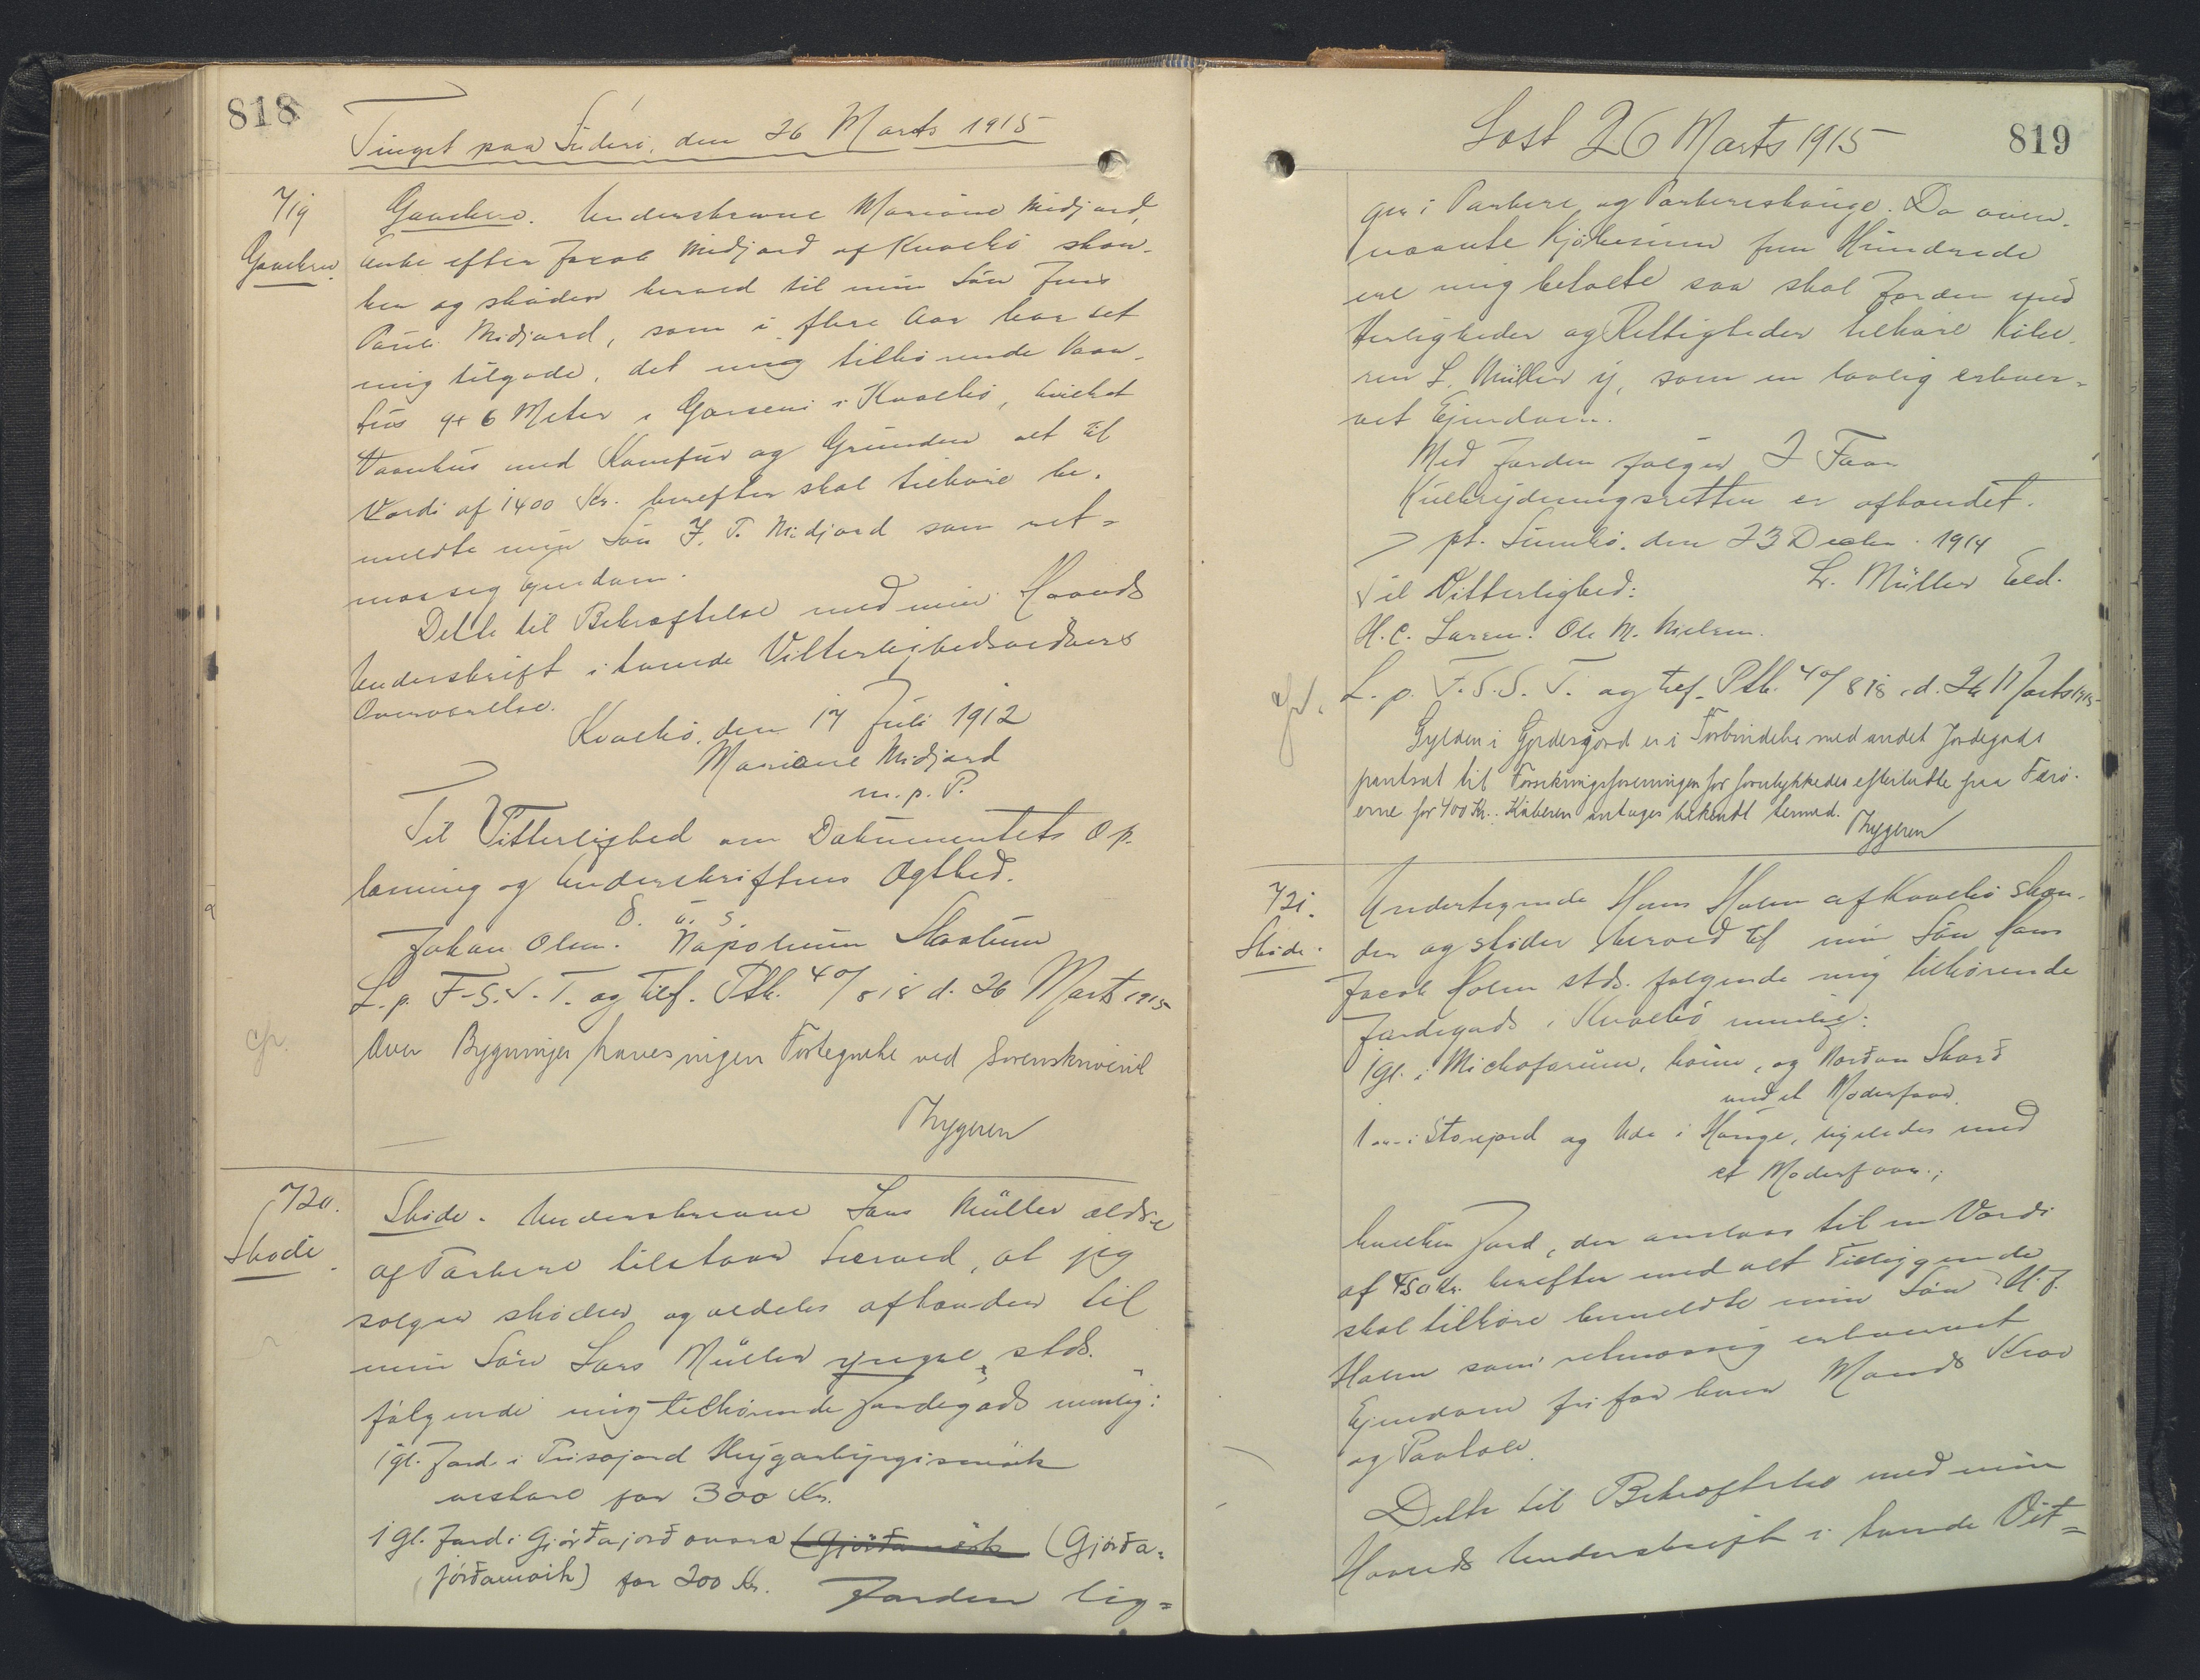 818
Tinget paa Suderø, den 26 Marts 1915
719
Gavebrev.
Gavebrev. Underskrevne Mariane Midjord,
Enke efter Jacob Midjord af Kvalbø skæn-
ker og skøder herved til min Søn Jens
Pauli Midjord, som i flere Aar har set
mig tilgode, det mig tilhørende Vaan-
hus 9x6 Meter i Garseni i Kvalbø, hvilket
Vaanhus med Komfur og Grunden alt til
Værdi af 1400 Kr. herefter skal tilhøre be-
meldte min Søn J. P. Midjord som ret-
mæssig Ejendom.
Dette til Bekræftelse med min Haands
Underskrift i tvende Vitterlighedsvidners
Overværelse.
Kvalbø, den 17 Juli 1912
Mariane Midjord
m. p. P.
Til Vitterlighed om Dokumentets Op-
læsning og Underskriftens Ægthed.
D. u. s.
Johan Olsen. Napoleon
L. p. F. S. S. T. og tilf. Ptb. 40/818 d. 26 Marts 1915
Over Bygninger haves ingen Fortegnelse ved Sorenskriveriet
Thygesen
720.
Skøde.
Skøde. Underskrevne Lars Müller ældre
af Porkere tilstaar herved, at jeg
sælger skøder og aldeles afhænder til
min Søn Lars Müller yngre, stds.
følgende mig tilhørende Jordegods nemlig:
1 gl. Jord i
vestare for 300 Kr.
1 gl. Jord i Gjørðajorð ovara (Gjørða-
jørðamørk) for 200 Kr. Jorden lig-
Løst 26 Marts 1915
819
ger i Porkere og Porkereshauge. Da oven-
nævnte Kjøbesum fem Hundrede
ere mig betalte saa skal Jorden med
Herligheder og Rettigheder tilhøre Købe-
ren L. Müller yj, som en lovlig erhver-
vet Ejendom.
Med Jorden følger 2 Faar
Kulbrydningsretten er afhændet.
pt. Sumbø, den 23 Decbr. 1914
Til Vitterlighed: L. Müller Eld.
H. C. Larsen. Ole M. Nielsen.
L. p. F. S. S. T. og tilf. Ptb. 40/818, d. 26 Marts 1915
Gylden i Gjørdesjord er i Forbindelse med andet Jordegods
pantsat til Forsikringsforeningen for forulykkedes efterladte paa Færø-
erne for 400 Kr. Køberen antages bekendt hermed.
Thygesen
721.
Skøde.
Undertegnede Hans Holm af Kvalbø skæn-
ker og skøder herved til min Søn Hans
Jacob Holm stds. følgende mig tilhørende
Jordegods i Kvalbø nemlig:
1 gl. i Michofarum, heima, og Norðan Skarð
med et Moderfaar.
1 -"- i Storejord og Uda i Hauge, ligeledes med
et Moderfaar;
hvilken Jord, der anslaas til en Værdi
af 450 Kr. herefter med alt Tilliggende
skal tilhøre bemeldte min Søn H. J.
Holm som retmæssig erhvervet
Ejendom fri for hver Mands Krav
og Paatale.
Dette til Bekræftelse med min
Haands Underskrift i tvende Vit-